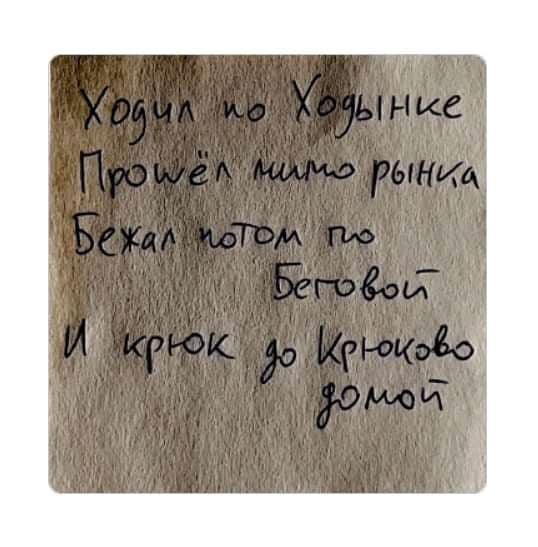 Ходил по Ходынке
Прошёл мимо рынка
Бежал потом по
Беговой
И крюк до Крюково
домой